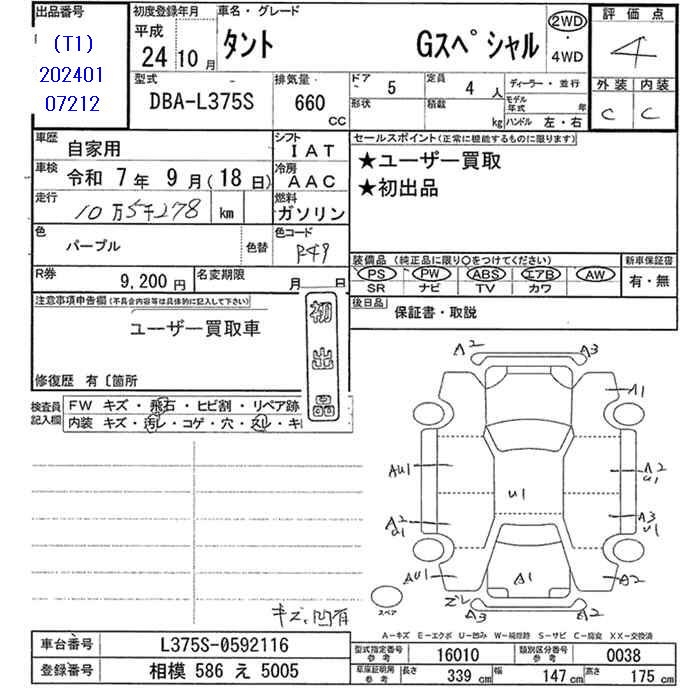 出品番号
(T1)
202401
07212
初度登録年月
平成
24年10月
車名・グレード
タント Gスペシャル
2WD
・
4WD
評価点
4
外装 内装
C C
型式
DBA-L375S
排気量
660
CC
ドア 5
形状
定員 4 人
積載 kg
ディーラー・並行
モデル年式 年
ハンドル 左・右
車歴 自家用
シフト IAT
車検 令和 7年 9月(18日)
冷房 AAC
走行 10万5千278 km
燃料 ガソリン
色 パープル 色替
色コード P49
R券 9,200円
名変期限 月 日
セールスポイント(正常に機能するものに限ります)
★ユーザー買取
★初出品
装備品 (純正品に限り○をつけてください)
PS PW ABS エアB AW
SR ナビ TV カワ
新車保証書
有・無
後日品 保証書・取説
注意事項申告欄(不具合内容等は具体的に記入して下さい)
ユーザー買取車
初出品
修復歴 有〔箇所
検査員記入欄
FW キズ・飛石・ヒビ割・リペア跡
内装 キズ・汚レ・コゲ・穴・スレ・キ
A2 A3
A1
AU1
A2
U1
U1
A2
U1
A3
U1
AU1
A1
A2
ズレ
スペア
キズ、凹有
A-キズ E-エクボ U-凹み W-補修跡 S-サビ C-腐食 XX-交換済
車台番号 L375S-0592116
型式指定番号 参考 16010
類別区分番号 参考 0038
登録番号 相模 586 え 5005
車庫証明用 参考 長さ 339 cm 幅 147 cm 高さ 175 cm